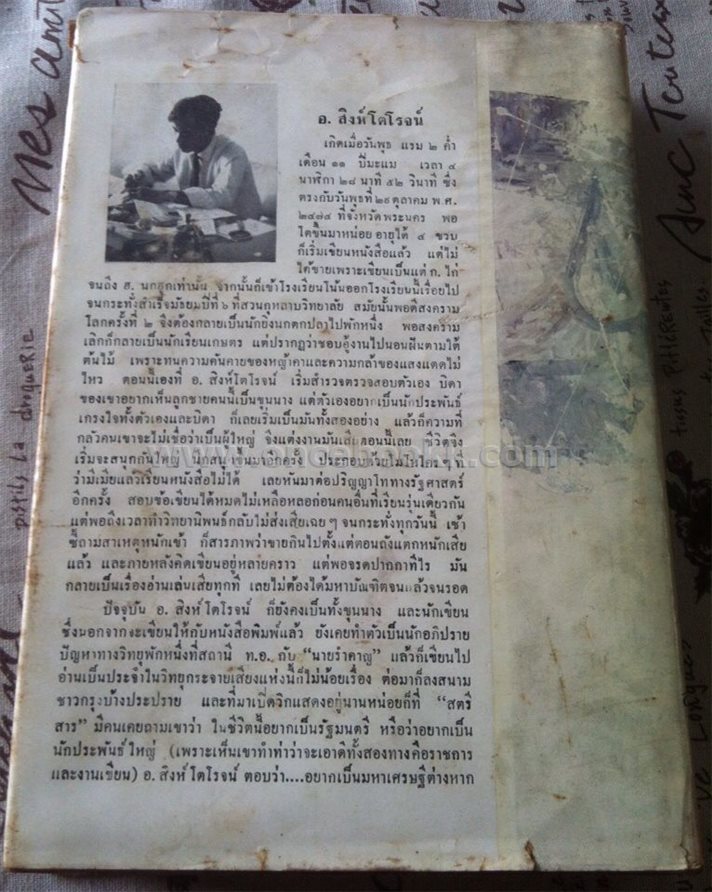 อ. สิงห์โตโรจน์
เกิดเมื่อวันพุธ แรม ๒ ค่ำ
เดือน ๑๑ ปีมะแม เวลา ๔
นาฬิกา ๒๘ นาที ๕๒ วินาที ซึ่ง
ตรงกับวันพุธที่ ๒๙ ตุลาคม พ.ศ.
๒๔๗๔ ที่จังหวัดพระนคร พอ
โตขึ้นมาหน่อย อายุได้ ๔ ขวบ
ก็เริ่มเขียนหนังสือแล้ว แต่ไม่
ได้ขายเพราะเขียนเป็นแต่ ก. ไก่
จนถึง ฮ. นกฮูกเท่านั้น จากนั้นก็เข้าโรงเรียนโน้นออกโรงเรียนนี้เรื่อยไป
จนกระทั่งสำเร็จมัธยมปีที่ ๖ ที่สวนกุหลาบวิทยาลัย สมัยนั้นพอดีสงคราม
โลกครั้งที่ ๒ จึงต้องกลายเป็นนักยิงนกตกปลาไปพักหนึ่ง พอสงคราม
เลิกก็กลายเป็นนักเรียนเกษตร แต่ปรากฏว่าชอบอู้งานไปนอนฝันตามใต้
ต้นไม้ เพราะทนความคันคายของหญ้าคาและความกล้าของแสงแดดไม่
ไหว ตอนนี้เองที่ อ. สิงห์โตโรจน์ เริ่มสำรวจตรวจสอบตัวเอง บิดา
ของเขาอยากเห็นลูกชายคนนี้เป็นขุนนาง แต่ตัวเองอยากเป็นนักประพันธ์
เกรงใจทั้งตัวเองและบิดา ก็เลยเริ่มเป็นมันทั้งสองอย่าง แล้วก็ความที่
กลัวคนเขาจะไม่เชื่อว่าเป็นผู้ใหญ่ จึงแต่งงานมันเสียตอนนี้เลย ชีวิตจึง
เริ่มจะสนุกกันใหญ่ นึกสนุกขึ้นมาอีกครั้ง ประกอบด้วยไม่ให้ใคร ๆ ที่
ว่ามีเมียแล้วเรียนหนังสือไม่ได้ เลยหันมาต่อปริญญาโททางรัฐศาสตร์
อีกครั้ง สอบข้อเขียนได้หมดไม่เหลือหลอก่อนคนอื่นที่เรียนรุ่นเดียวกัน
แต่พอถึงเวลาทำวิทยานิพนธ์กลับไม่ส่งเสียเฉย ๆ จนกระทั่งทุกวันนี้ เช้า
ซี้ถามสาเหตุหนักเข้า ก็สารภาพว่าขายกินไปตั้งแต่ตอนถังแตกหนักเสีย
แล้ว และภายหลังคิดเขียนอยู่หลายคราว แต่พอจรดปากกาทีไร มัน
กลายเป็นเรื่องอ่านเล่นเสียทุกที เลยไม่ต้องได้มหาบัณฑิตจนแล้วจนรอด
ปัจจุบัน อ. สิงห์โตโรจน์ ก็ยังคงเป็นทั้งขุนนาง และนักเขียน
ซึ่งนอกจากจะเขียนให้กับหนังสือพิมพ์แล้ว ยังเคยทำตัวเป็นนักอภิปราย
ปัญหาทางวิทยุพักหนึ่งที่สถานี ท.อ. กับ “นายรำคาญ” แล้วก็เขียนไป
อ่านเป็นประจำในวิทยุกระจายเสียงแห่งนี้ก็ไม่น้อยเรื่อง ต่อมาก็ลงสนาม
ชาวกรุงบ้างประปราย และที่มาเปิดวิกแสดงอยู่นานหน่อยก็ที่ “สตรี
สาร” มีคนเคยถามเขาว่า ในชีวิตนี้อยากเป็นรัฐมนตรี หรือว่าอยากเป็น
นักประพันธ์ใหญ่ (เพราะเห็นเขาทำท่าว่าจะเอาดีทั้งสองทางคือราชการ
และงานเขียน) อ. สิงห์โตโรจน์ ตอบว่า....อยากเป็นมหาเศรษฐีต่างหาก
Mes am
pistils La droguerie
tissus Différentes